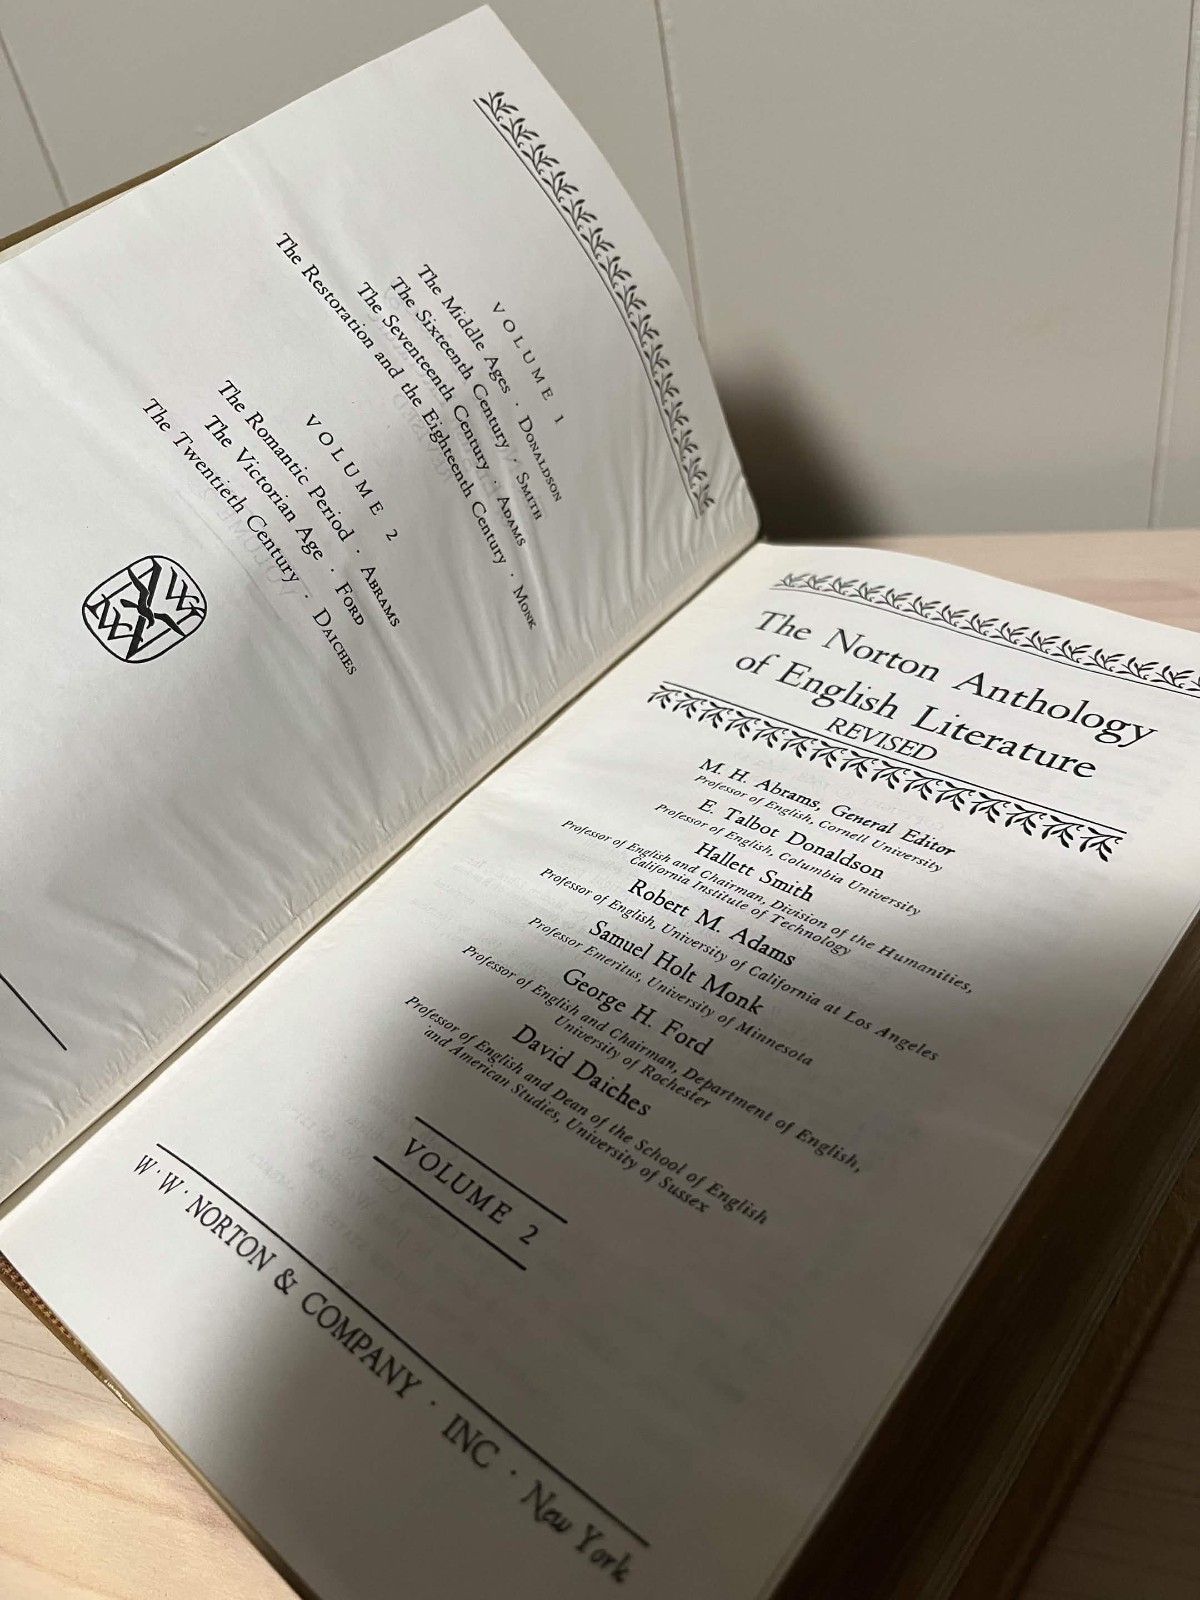 VOLUME 1
The Middle Ages · DONALDSON
The Sixteenth Century · SMITH
The Seventeenth Century · ADAMS
The Restoration and the Eighteenth Century · MONK
VOLUME 2
The Romantic Period · ABRAMS
The Victorian Age · FORD
The Twentieth Century · DAICHES
The Norton Anthology
of English Literature
REVISED
M. H. Abrams, General Editor
Professor of English, Cornell University
E. Talbot Donaldson
Professor of English, Columbia University
Hallett Smith
Professor of English and Chairman, Division of the Humanities,
California Institute of Technology
Robert M. Adams
Professor of English, University of California at Los Angeles
Samuel Holt Monk
Professor Emeritus, University of Minnesota
George H. Ford
Professor of English and Chairman, Department of English,
University of Rochester
David Daiches
Professor of English and Dean of the School of English
and American Studies, University of Sussex
VOLUME 2
W · W · NORTON & COMPANY · INC · New York